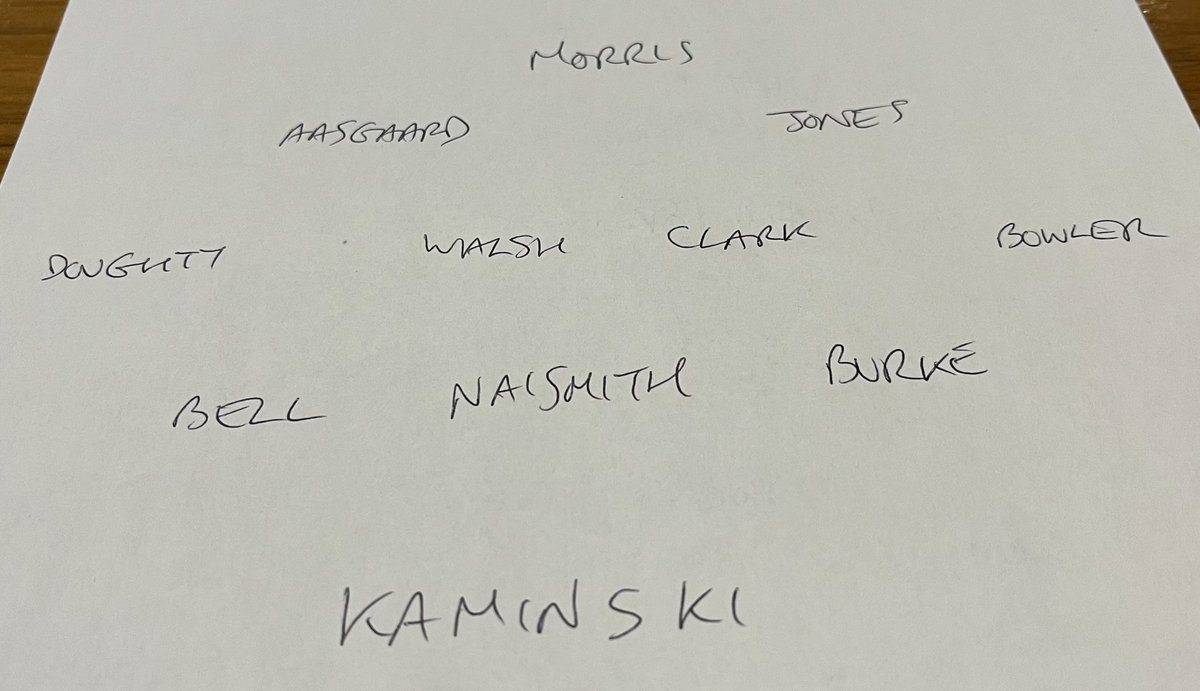 MORRIS
AASGAARD JONES
DOUGHTY WALSH CLARK BOWLER
BELL NAISMITH BURKE
KAMINSKI